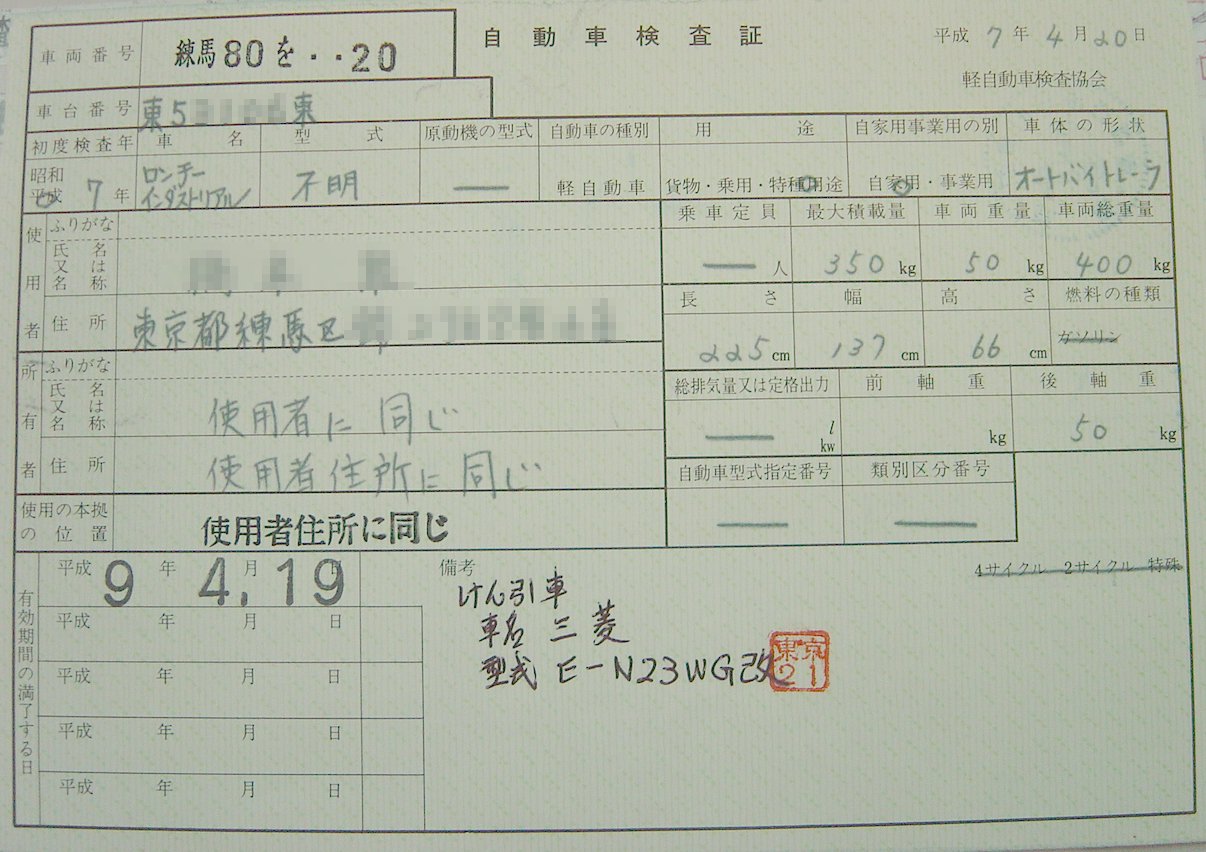 自動車検査証
平成 7 年 4 月 20 日
軽自動車検査協会
車両番号 練馬80を・・20
車台番号 東5 東
初度検査年 車名 型式 原動機の型式 自動車の種別 用途 自家用事業用の別 車体の形状
昭和 平成 7 年 ロンチー インダストリアル 不明 — 軽自動車 貨物・乗用・特種用途 自家用・事業用 オートバイトレーラ
使用者
ふりがな
氏名又は名称
住所 東京都練馬区
所有者
ふりがな
氏名又は名称 使用者に同じ
住所 使用者住所に同じ
使用の本拠の位置 使用者住所に同じ
乗車定員 最大積載量 車両重量 車両総重量
— 人 350 kg 50 kg 400 kg
長さ 幅 高さ 燃料の種類
225 cm 137 cm 66 cm ガソリン
総排気量又は定格出力 前軸重 後軸重
— l kw kg 50 kg
自動車型式指定番号 類別区分番号
— —
有効期間の満了する日
平成 9 年 4 月 19 日
平成 年 月 日
平成 年 月 日
平成 年 月 日
平成 年 月 日
備考
4サイクル 2サイクル 特殊
けん引車
車名 三菱
型式 E-N23WG改
東京
21